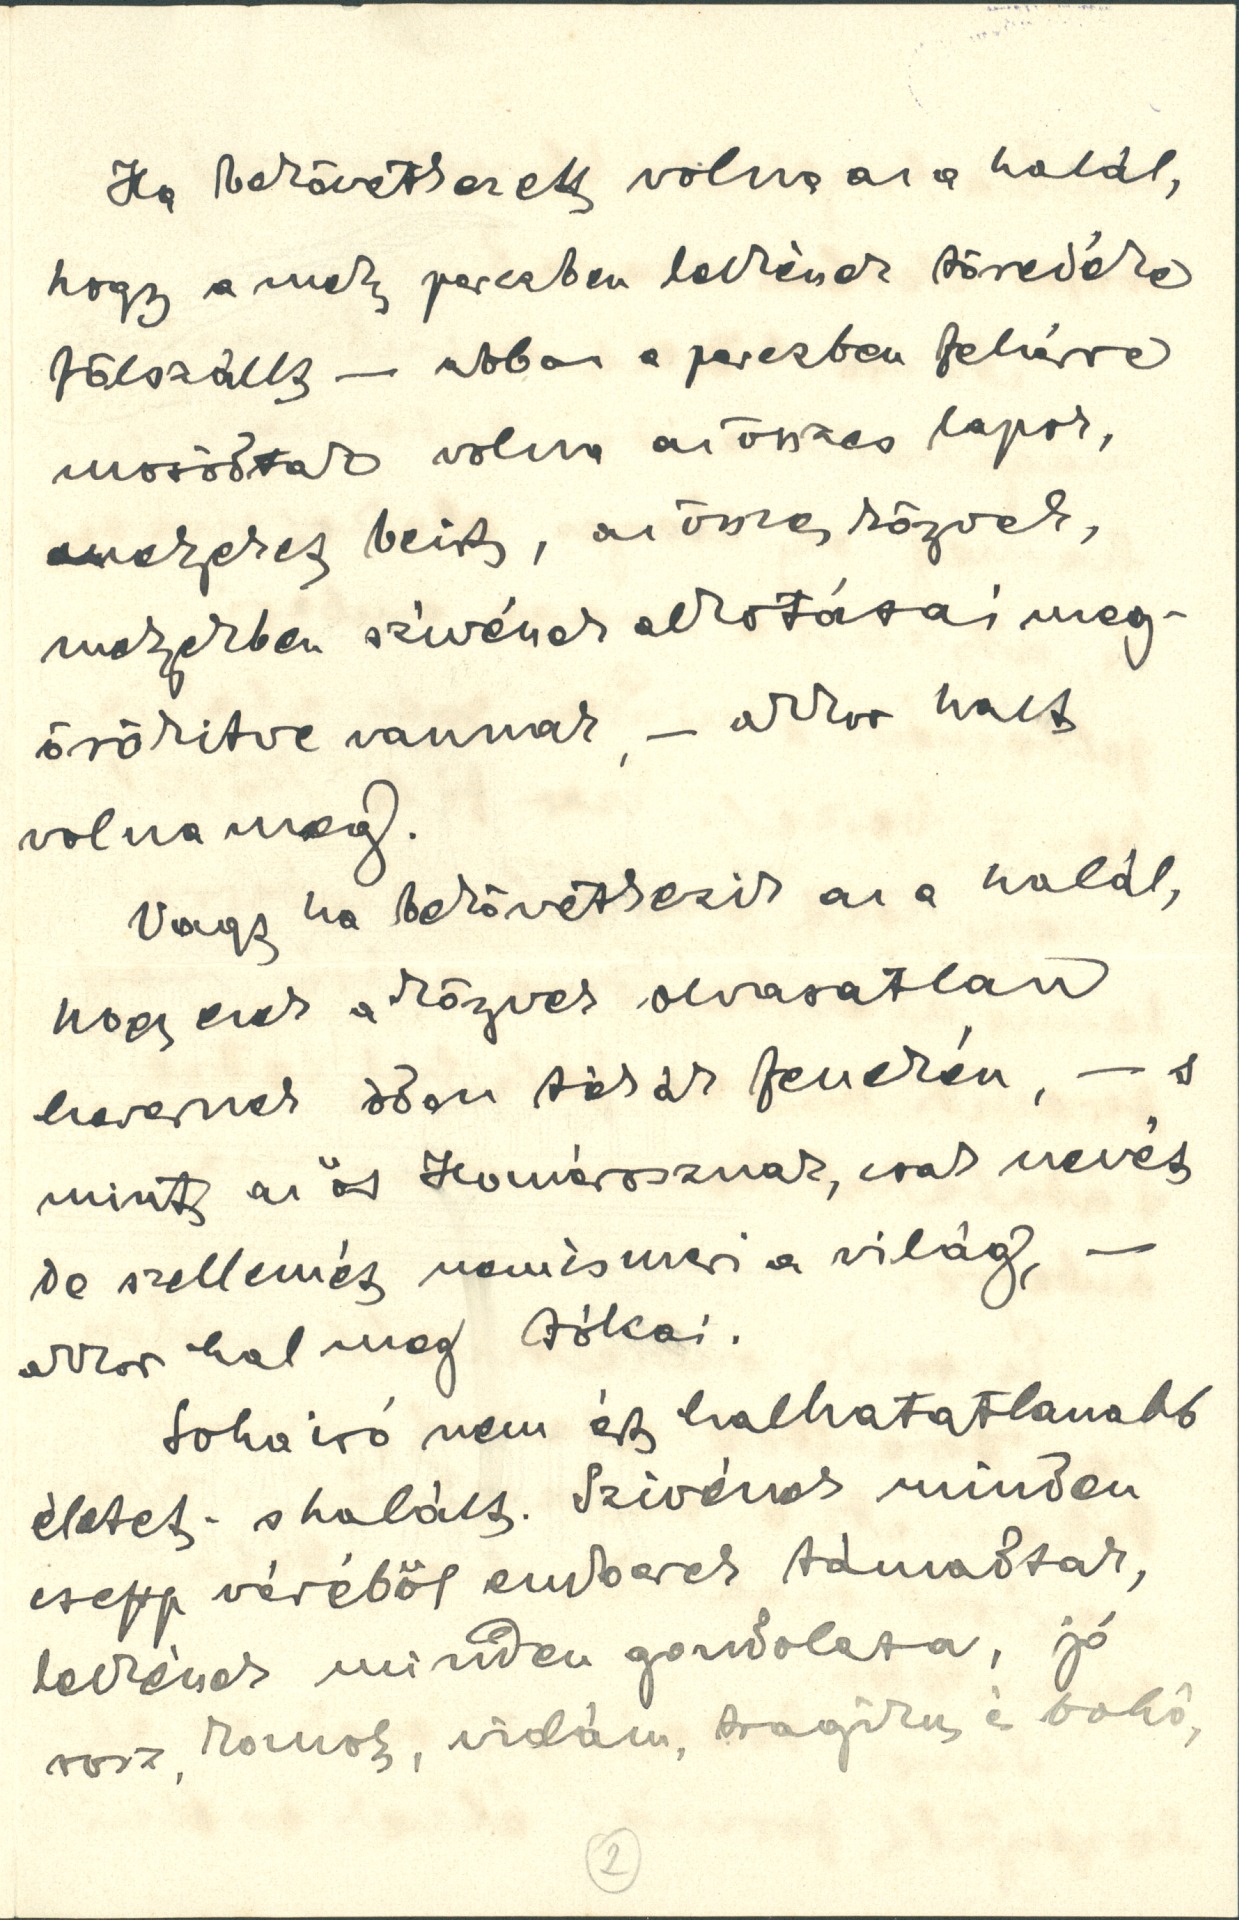 Ha bekövetkezett volna az a halál,
hogy a mely perczben lelkének töredéke
fölszállt — abban a perczben fehérre
mosódtak volna az összes lapok,
melyeket beirt, az összes könyvek,
melyekben szivének alkotásai meg-
örökitve vannak, — akkor halt
volna meg.
Vagy ha bekövetkezik az a halál,
hogy ezek a könyvek olvasatlan
hevernek ódon tékák fenekén, — s
mint az ős Homérosznak, csak nevét
de szellemét nem ismeri a világ, —
akkor hal meg Jókai.
Soha iró nem élt halhatatlanabb
életet - s halált. Szivének minden
csepp véréből emberek támadtak,
lelkének minden gondolata, jó
rosz, komoly, vidám, tragikus és bohó,
2